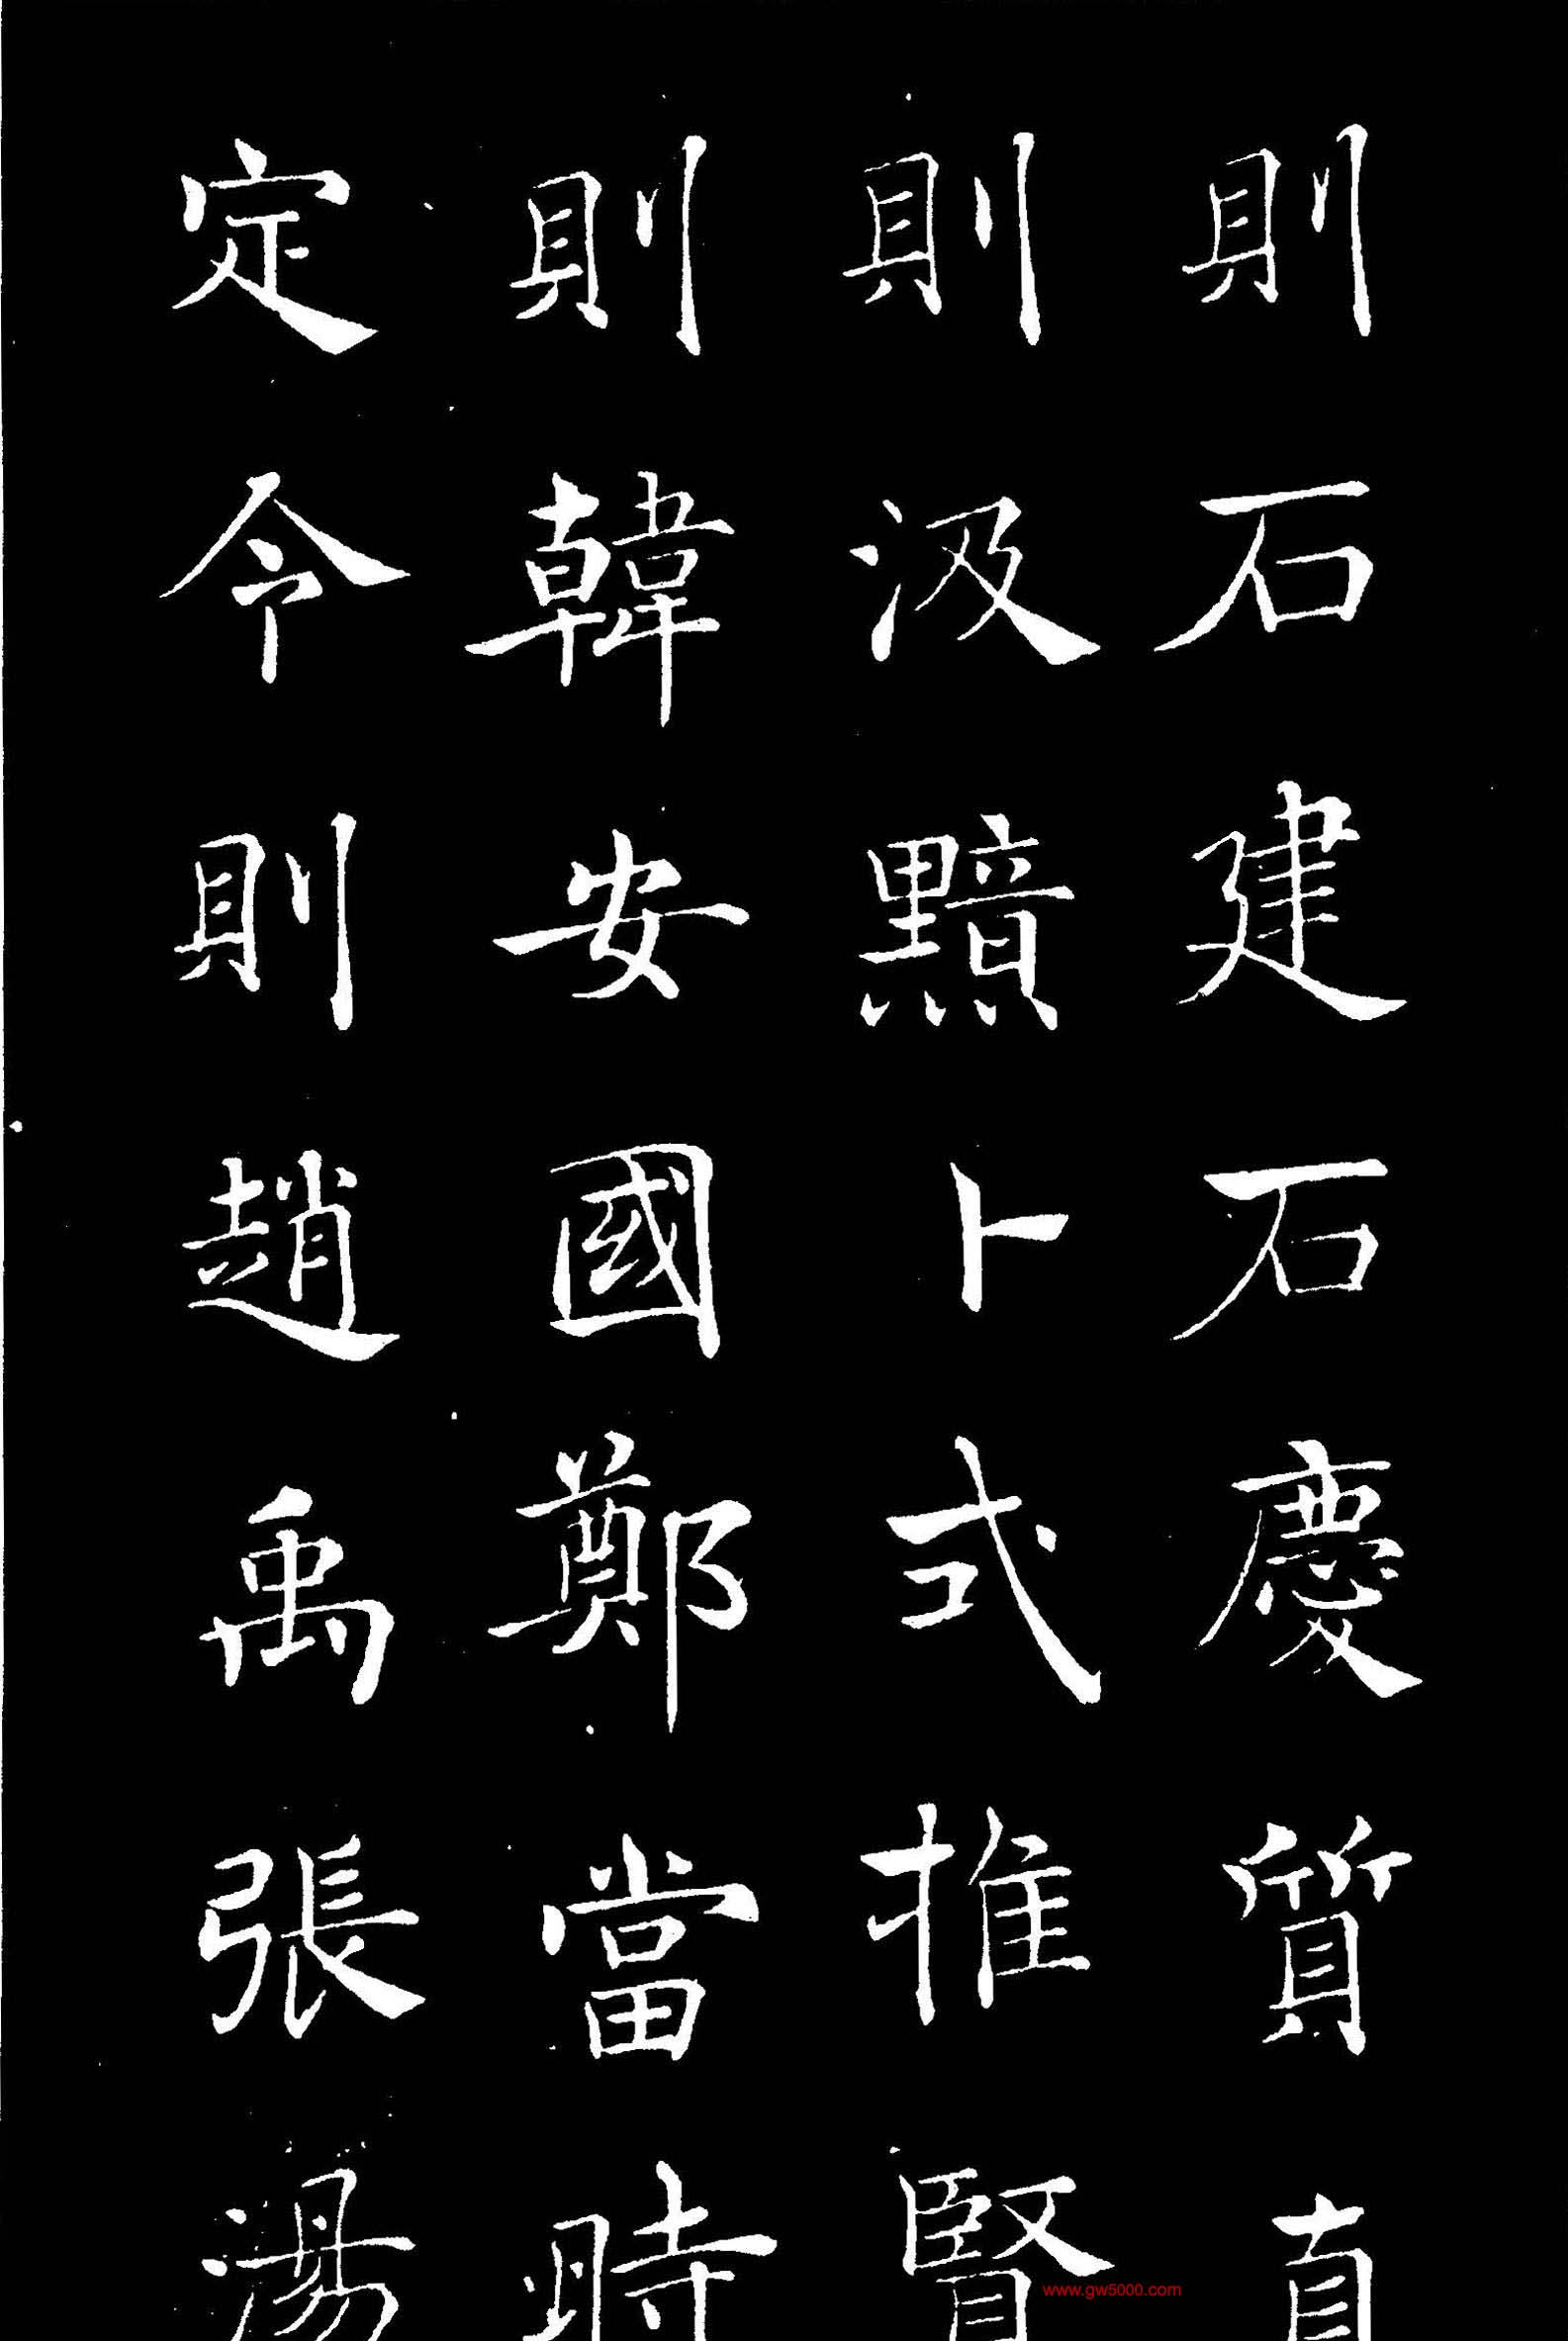 則石建石慶質直
則汲黯卜式推賢
則韓安國鄭當時
定令則趙禹張湯
www.gw5000.com